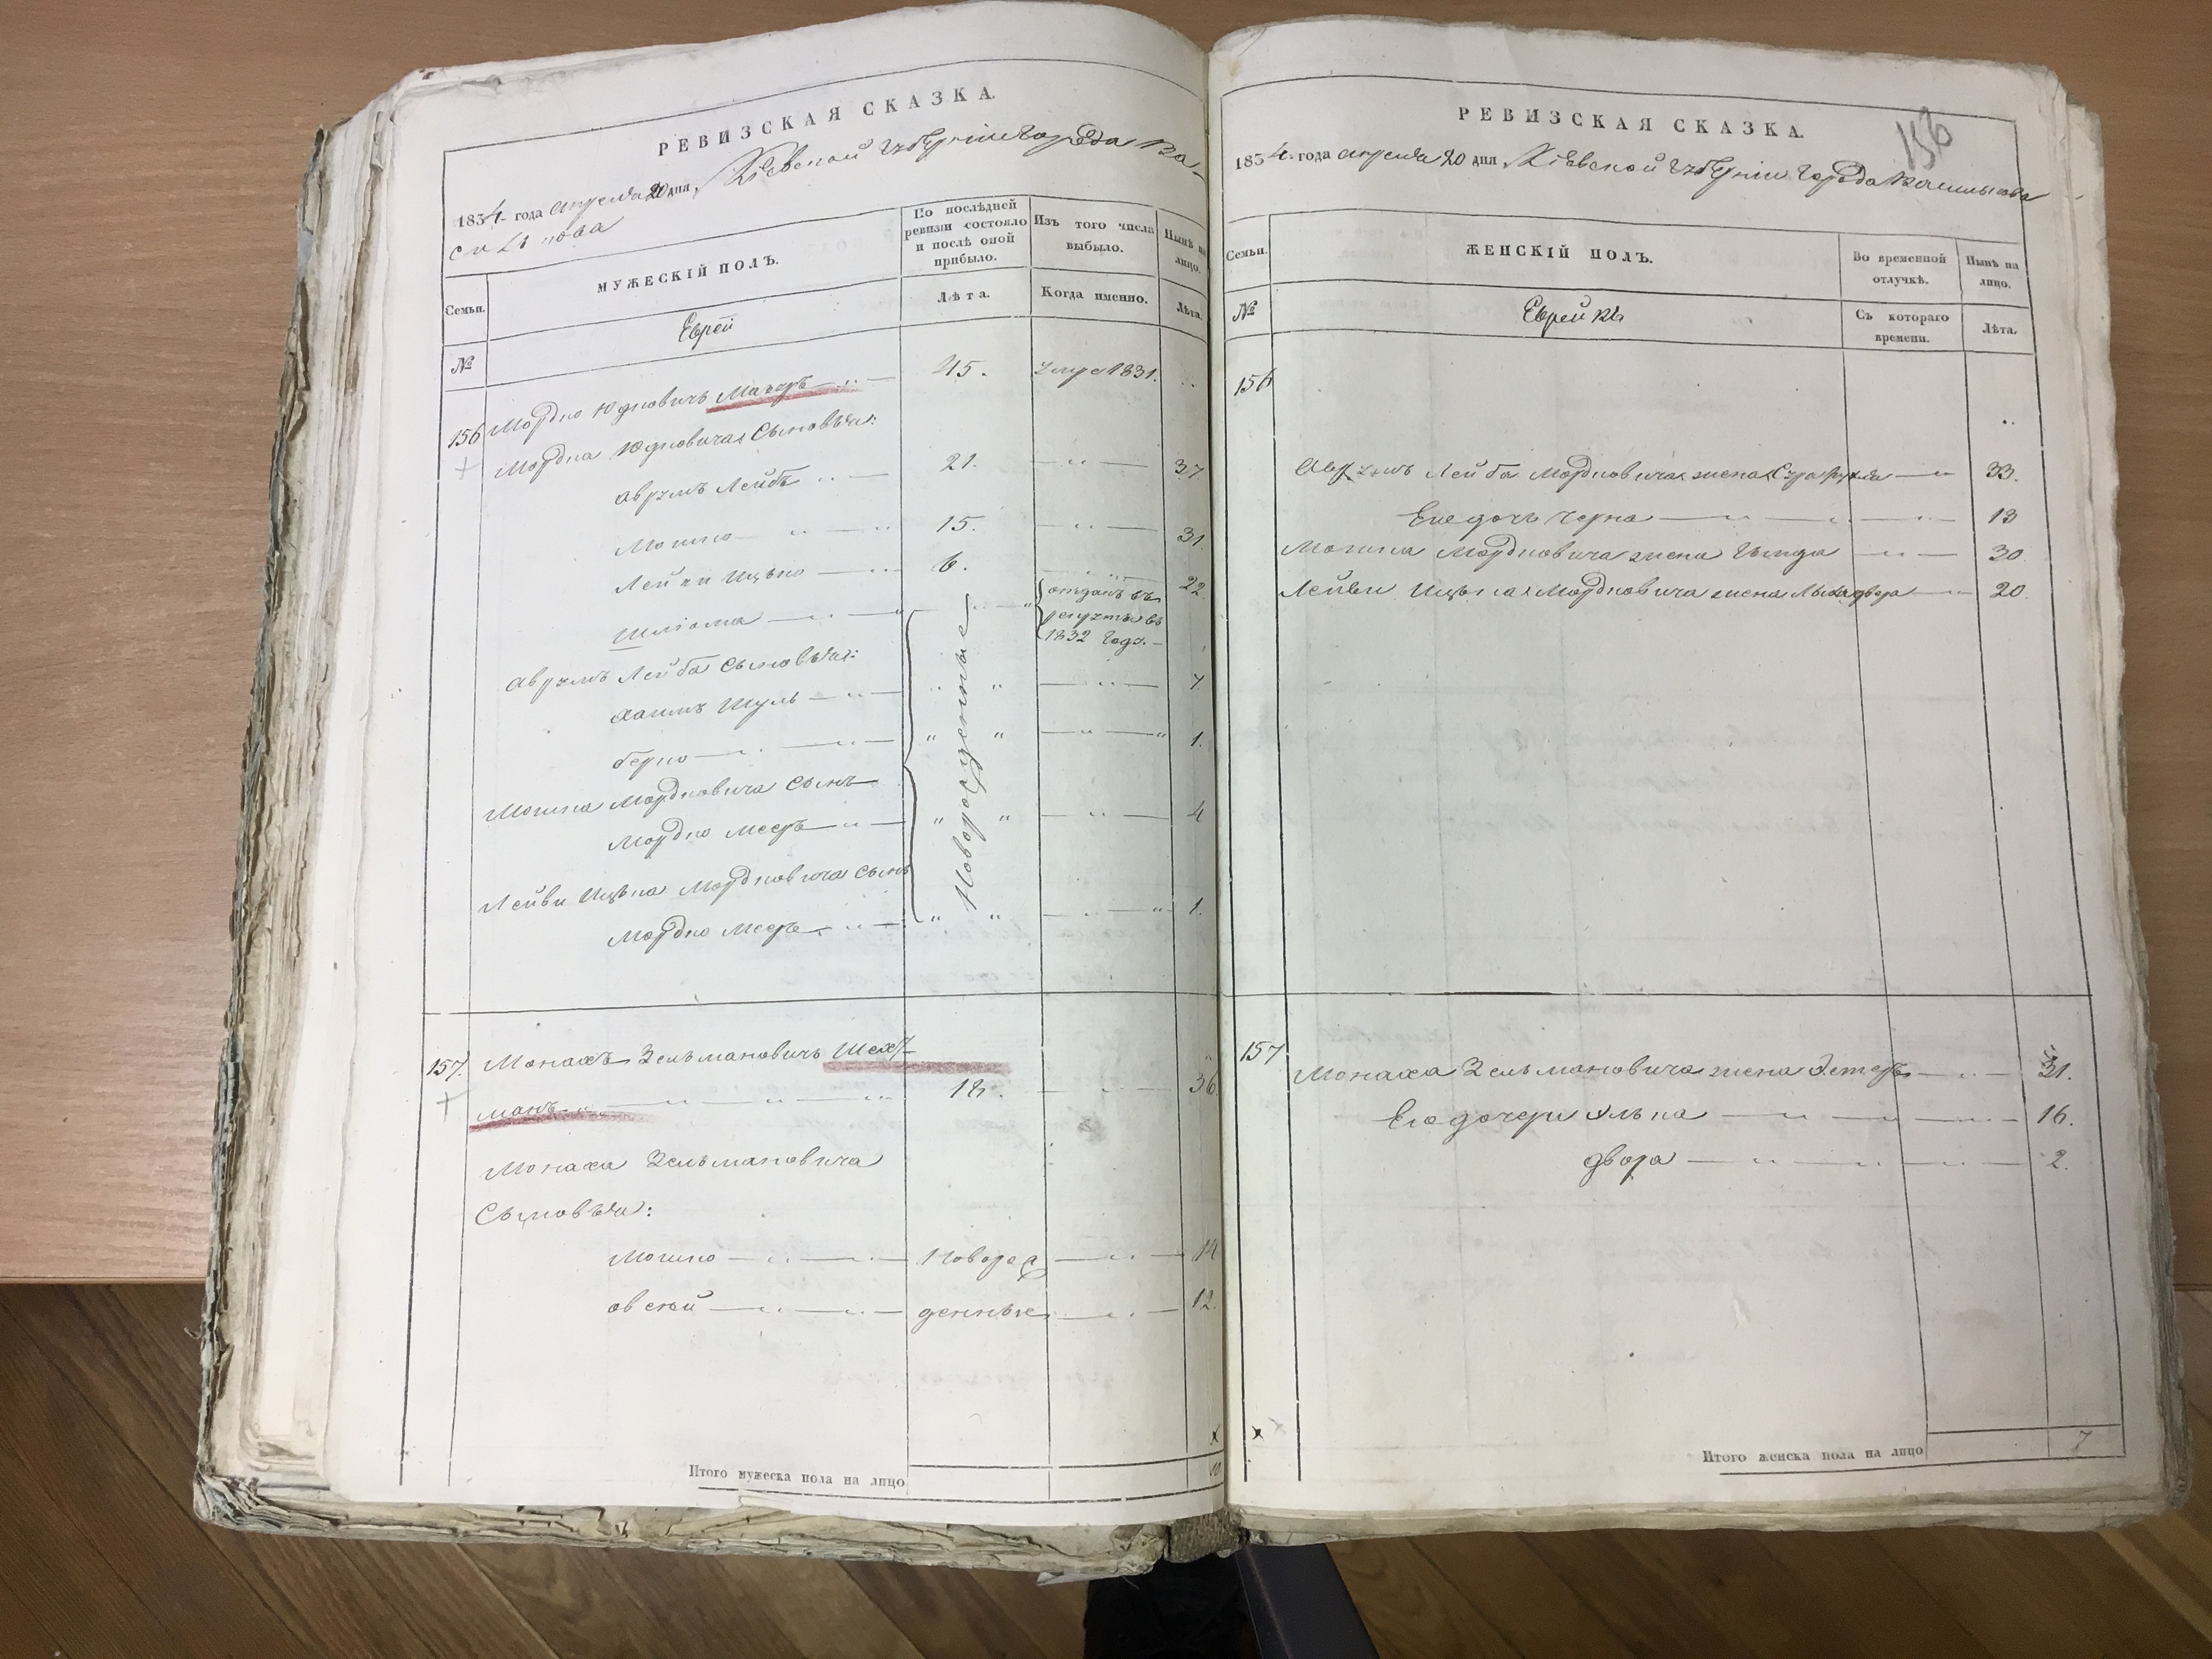 РЕВИЗСКАЯ СКАЗКА.
1834 года апреля 20 дня Кіевской Губерніи Города Ва-
сильков
МУЖЕСКІЙ ПОЛЪ.
По послѣдней ревизіи состояло и послѣ оной прибыло.
Изъ того числа выбыло.
Нынѣ на лицо.
Семьи.
Лѣта.
Когда именно.
Лѣта.
№
Еврей
156 Мордко Юдковичъ 45. умре 1831.
Мордка Юдковича Сыновья:
Аврумъ Лейба 21. 37
Мошко 15. 31
Ицько 6. 22
Шліома отданъ въ рекруты въ 1832 году.
Новорожденные
Аврумъ Лейба Сыновья:
Хаимъ Шуль 7
Берко 1.
Мошка Мордковича Сынъ
Мордко Меер 4
Лейви Ицька Мордковича Сынъ
Мордко Меер 1.
157. Монахъ Зельмановичъ Шехт-
манъ 18. 36
Монаха Зельмановича
Сыновья:
Мошко Новорож 14
Овсей денные 12.
Итого мужеска пола на лицо 10
РЕВИЗСКАЯ СКАЗКА.
156
1834 года апреля 20 дня Кіевской Губерніи Города Василькова
Семьи.
ЖЕНСКІЙ ПОЛЪ.
Во временной отлучкѣ.
Нынѣ на лицо.
№
Еврейки
Съ котораго времени.
Лѣта.
156
Аврумъ Лейба Мордковича жена Сура 33.
Ево дочь Черна 13
Мошка Мордковича жена 30
Лейви Ицька Мордковича жена 20
157 Монаха Зельмановича жена Эстер 31.
Его дочери 16.
Двора 2.
Итого женска пола на лицо 7